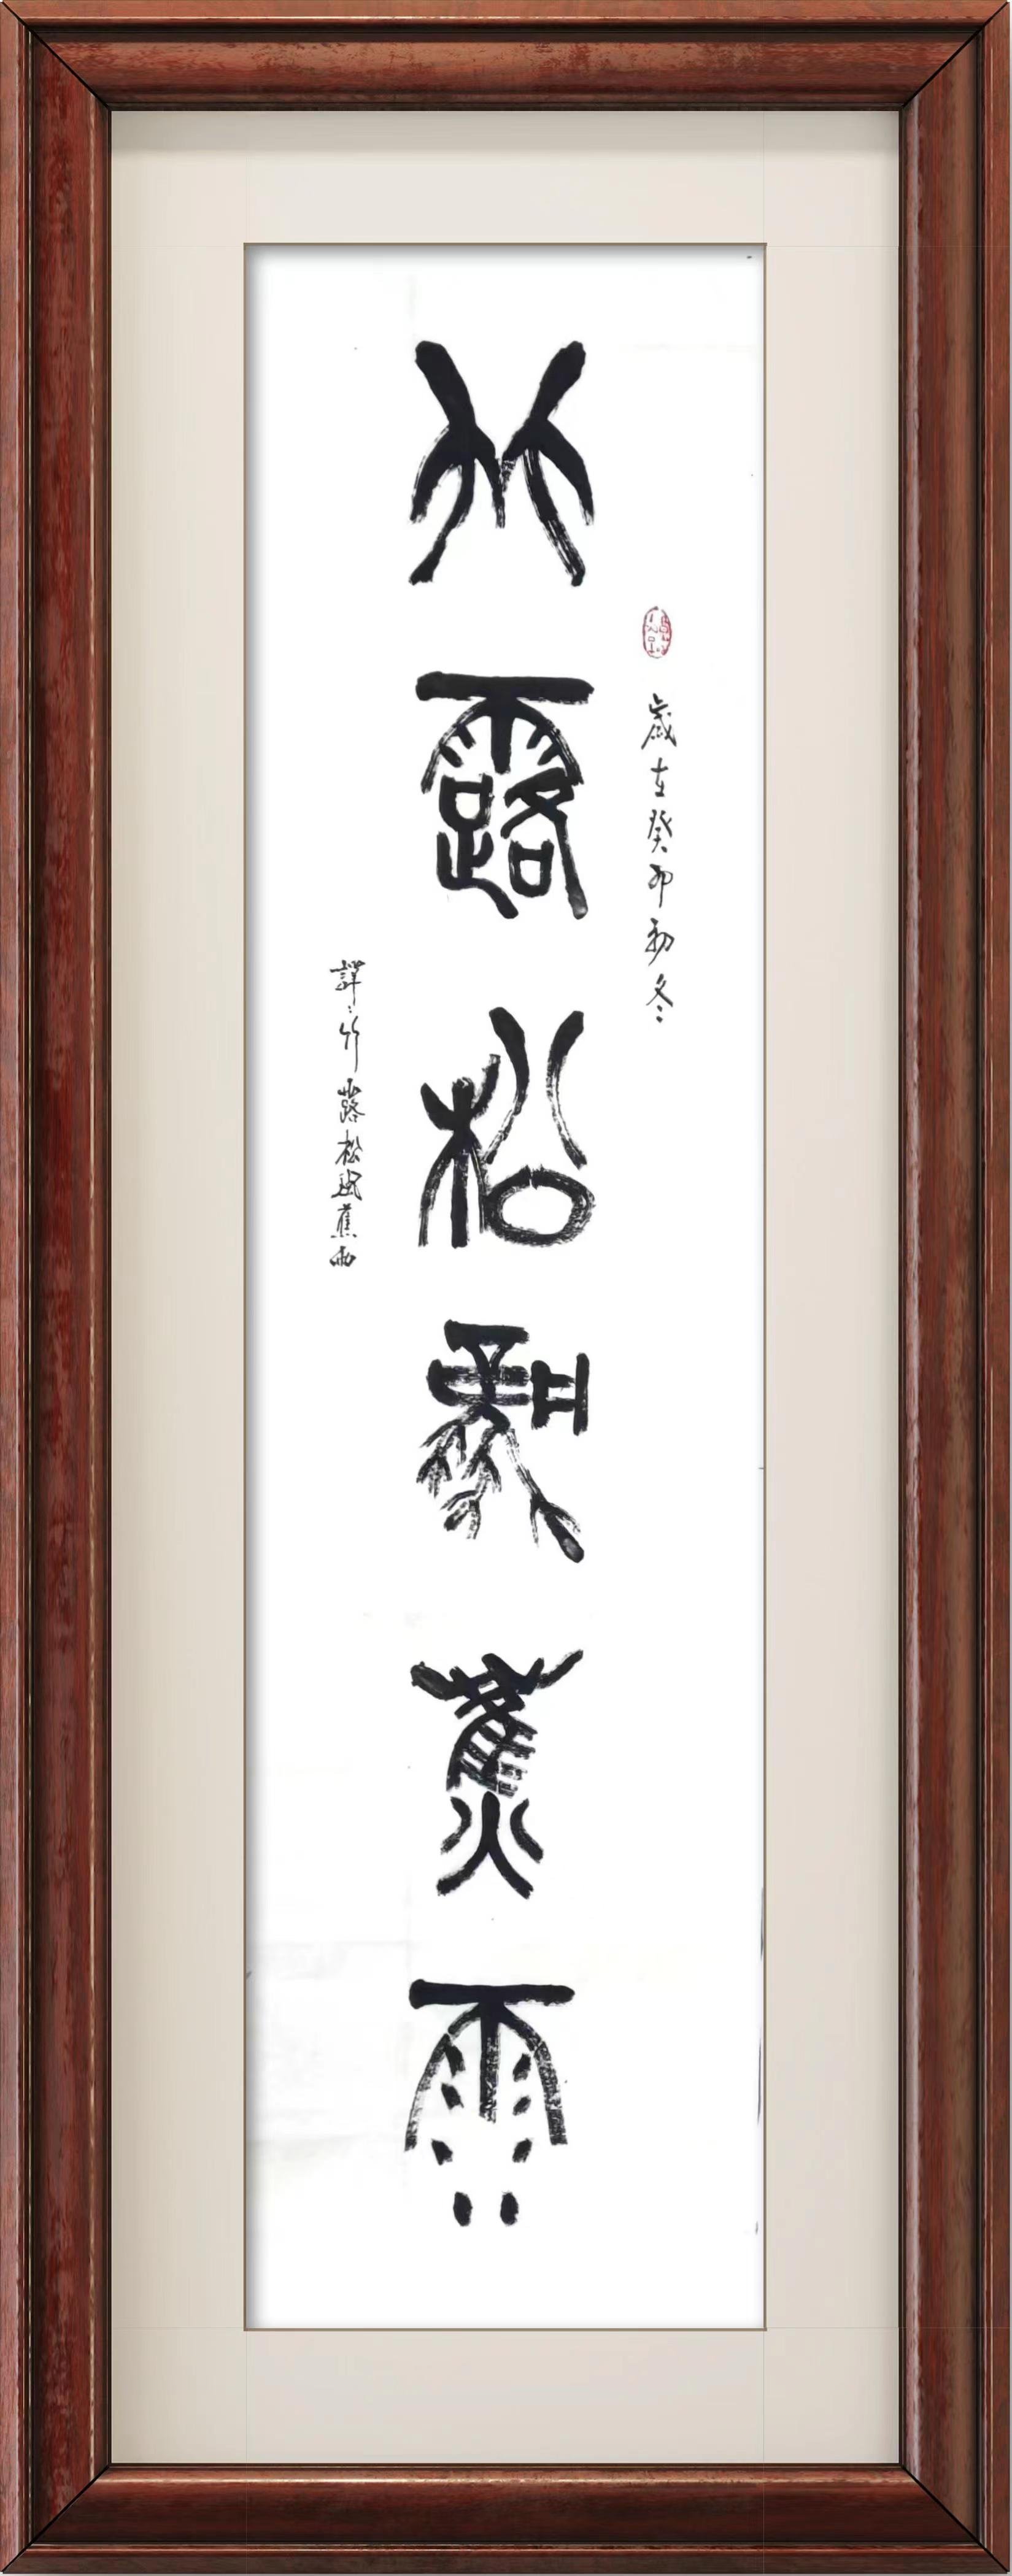 歲在癸卯初冬
竹露松風蕉雨
譯：竹露松風蕉雨